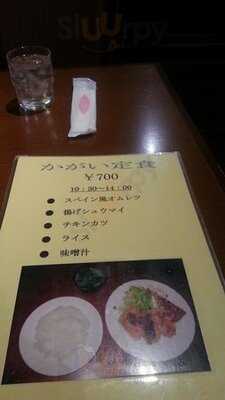 Sluurpy
かがい定食
￥700
10：30～14：00
● スペイン風オムレツ
● 揚げシュウマイ
● チキンカツ
● ライス
● 味噌汁